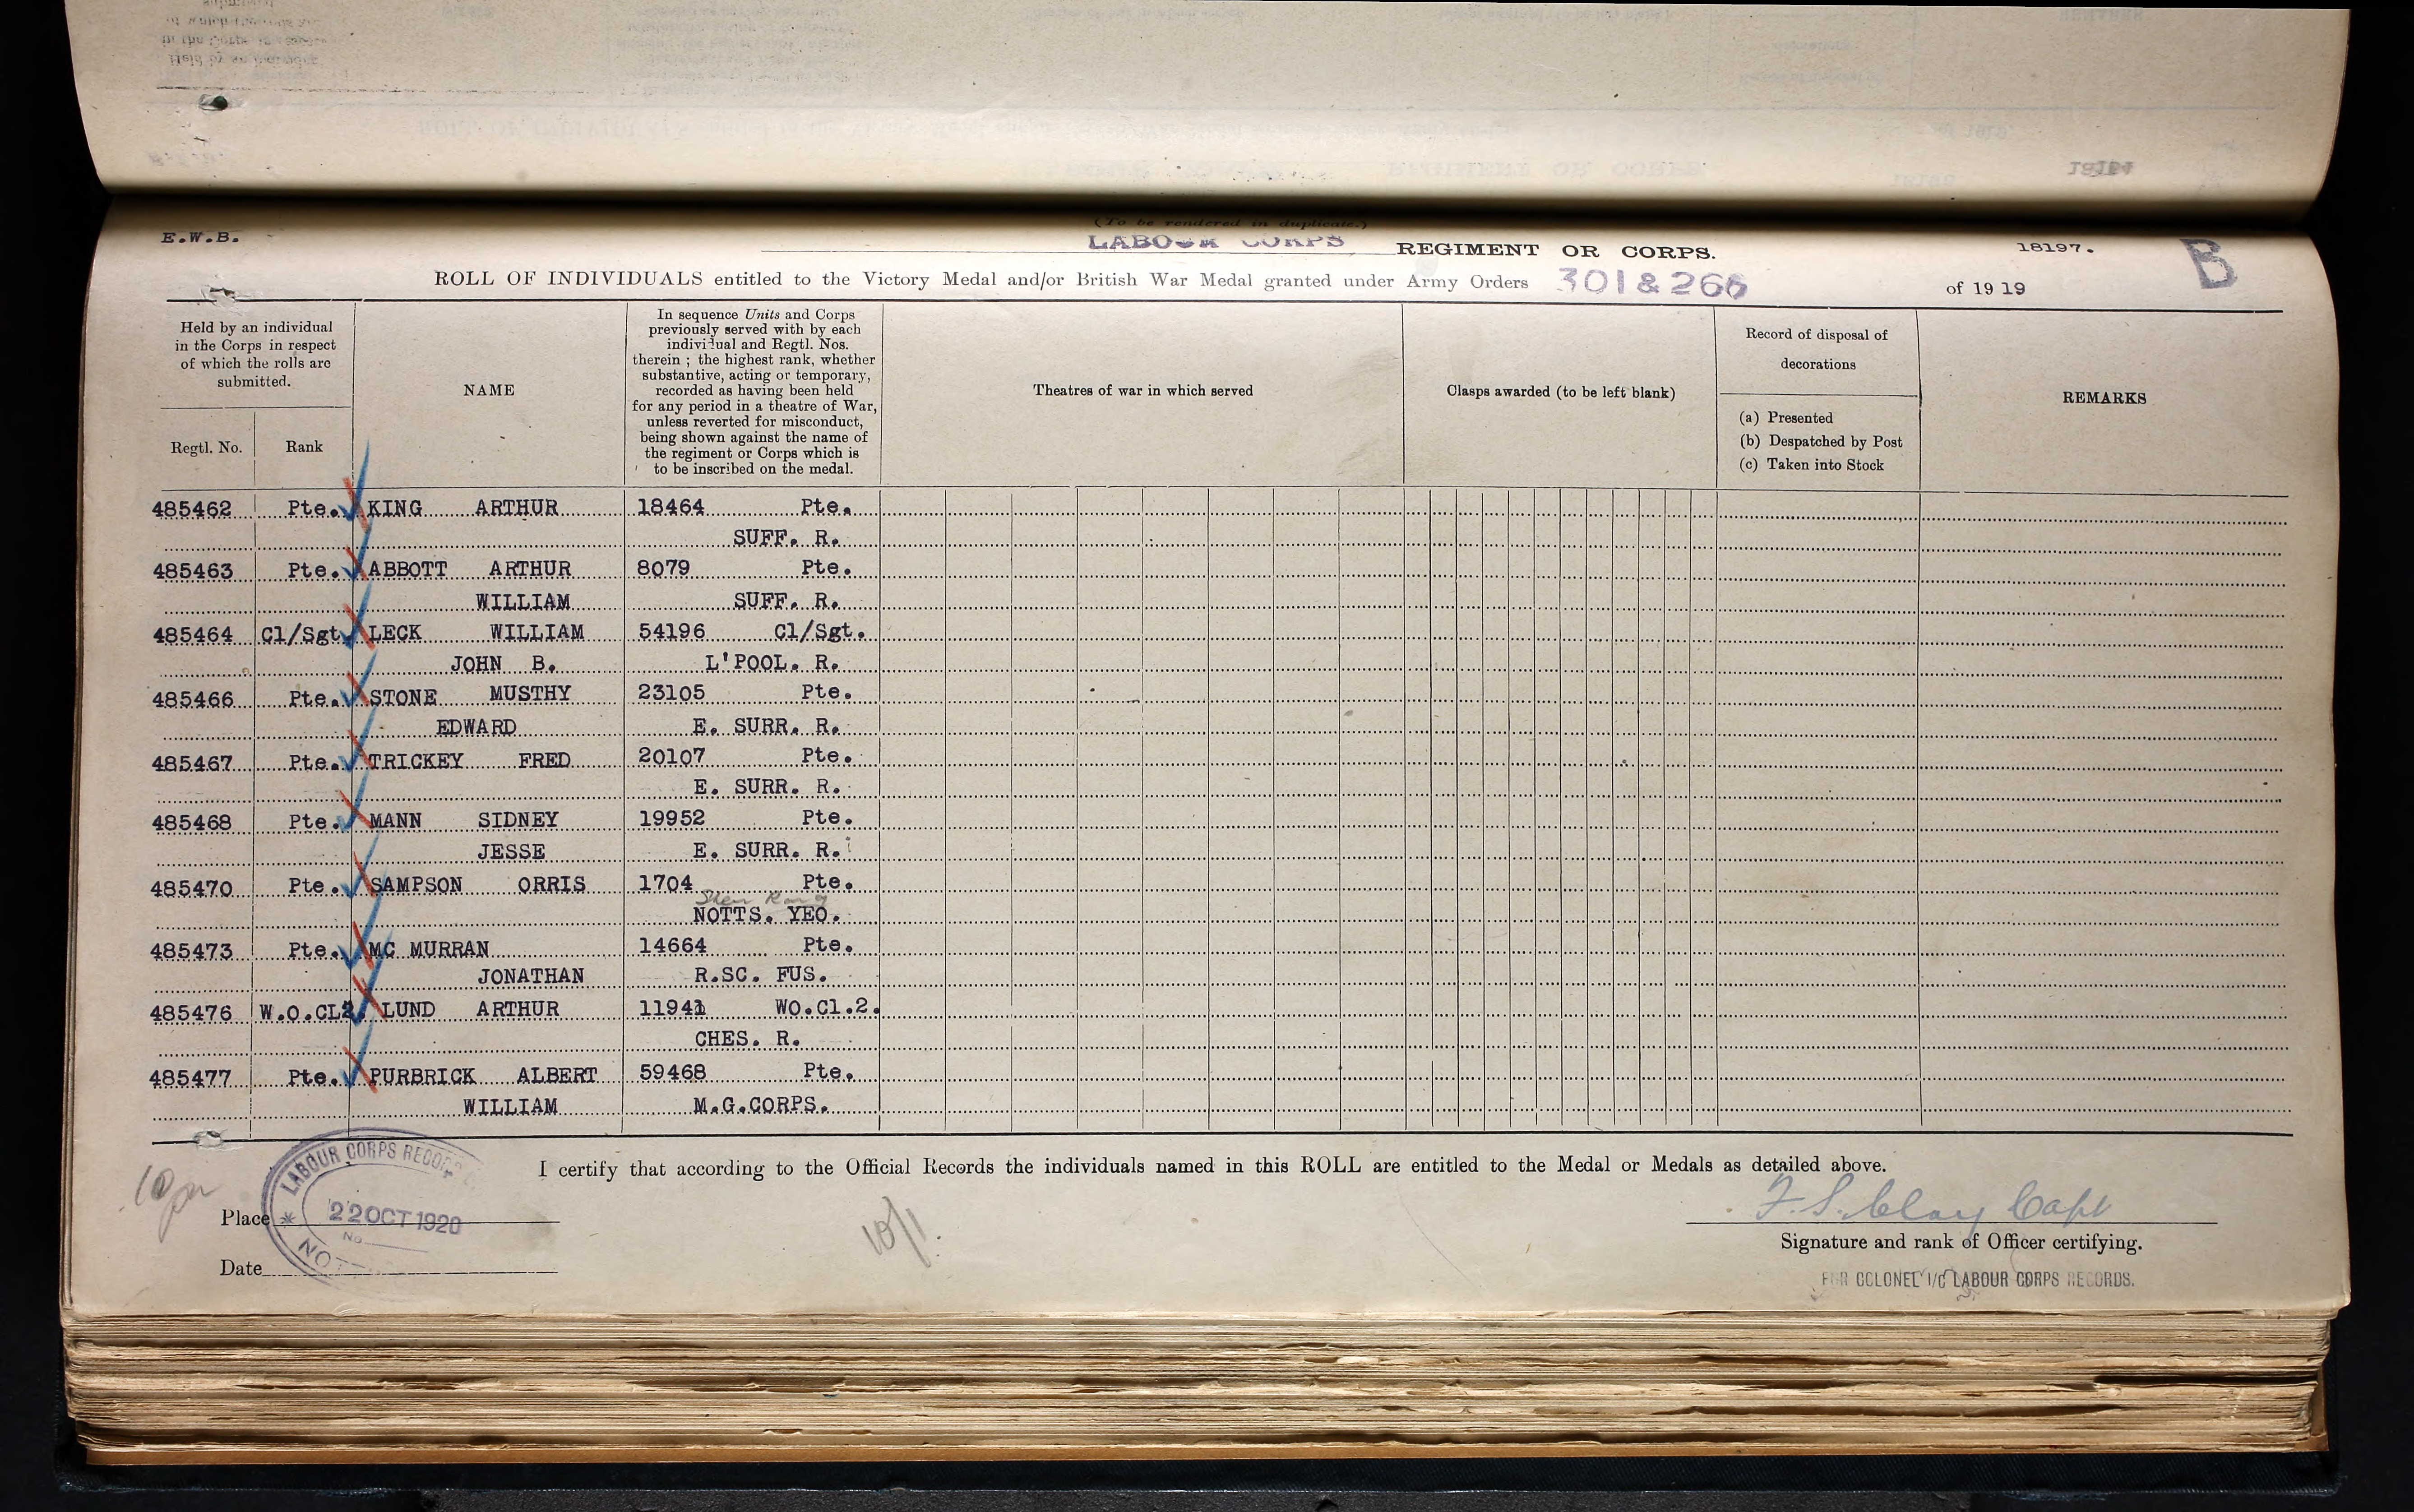 (To be rendered in duplicate.)
E.W.B.
LABOUR CORPS REGIMENT OR CORPS. 18197. B
ROLL OF INDIVIDUALS entitled to the Victory Medal and/or British War Medal granted under Army Orders 301 & 266 of 1919
Held by an individual
in the Corps in respect
of which the rolls are
submitted.
Regtl. No. Rank
NAME
In sequence Units and Corps
previously served with by each
individual and Regtl. Nos.
therein ; the highest rank, whether
substantive, acting or temporary,
recorded as having been held
for any period in a theatre of War,
unless reverted for misconduct,
being shown against the name of
the regiment or Corps which is
to be inscribed on the medal.
Theatres of war in which served
Clasps awarded (to be left blank)
Record of disposal of
decorations
(a) Presented
(b) Despatched by Post
(c) Taken into Stock
REMARKS
485462 Pte. KING ARTHUR 18464 Pte.
SUFF. R.
485463 Pte. ABBOTT ARTHUR 8079 Pte.
WILLIAM SUFF. R.
485464 Cl/Sgt. LECK WILLIAM 54196 Cl/Sgt.
JOHN B. L'POOL. R.
485466 Pte. STONE MUSTHY 23105 Pte.
EDWARD E. SURR. R.
485467 Pte. TRICKEY FRED 20107 Pte.
E. SURR. R.
485468 Pte. MANN SIDNEY 19952 Pte.
JESSE E. SURR. R.
485470 Pte. SAMPSON ORRIS 1704 Pte.
NOTTS. YEO.
485473 Pte. MC MURRAN 14664 Pte.
JONATHAN R.SC. FUS.
485476 W.O.CL2. LUND ARTHUR 11941 WO.Cl.2.
CHES. R.
485477 Pte. PURBRICK ALBERT 59468 Pte.
WILLIAM M.G.CORPS.
I certify that according to the Official Records the individuals named in this ROLL are entitled to the Medal or Medals as detailed above.
LABOUR CORPS RECORD
Place
22 OCT 1920
No
Date
10/1
F. S. Clay Capt
Signature and rank of Officer certifying.
FOR COLONEL I/C LABOUR CORPS RECORDS.